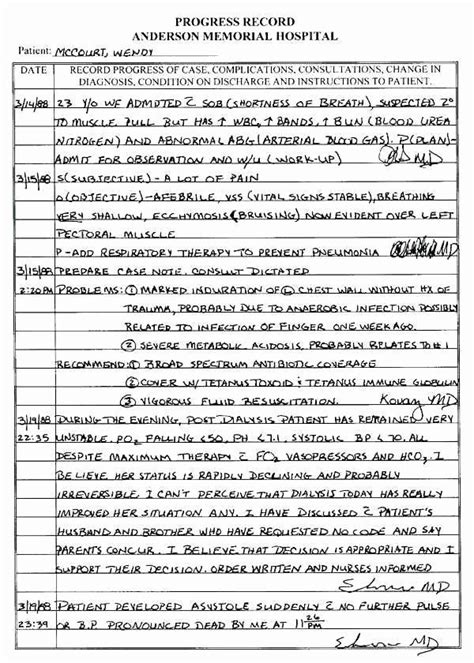 PROGRESS RECORD
ANDERSON MEMORIAL HOSPITAL
Patient: MCCOURT, WENDY
DATE RECORD PROGRESS OF CASE, COMPLICATIONS, CONSULTATIONS, CHANGE IN
DIAGNOSIS, CONDITION ON DISCHARGE AND INSTRUCTIONS TO PATIENT.
3/14/88 23 Y/O WF ADMITTED C̄ SOB (SHORTNESS OF BREATH), SUSPECTED 2°
TO MUSCLE PULL BUT HAS ↑ WBC, ↑ BANDS, ↑ BUN (BLOOD UREA
NITROGEN) AND ABNORMAL ABG (ARTERIAL BLOOD GAS). P(PLAN)-
ADMIT FOR OBSERVATION AND W/U (WORK-UP) MD
3/15/88 S(SUBJECTIVE) - A LOT OF PAIN
O(OBJECTIVE) - AFEBRILE, VSS (VITAL SIGNS STABLE), BREATHING
VERY SHALLOW, ECCHYMOSIS (BRUISING) NOW EVIDENT OVER LEFT
PECTORAL MUSCLE
P - ADD RESPIRATORY THERAPY TO PREVENT PNEUMONIA MD
3/15/88 PREPARE CASE NOTE. CONSULT DICTATED
2:20PM PROBLEMS: ① MARKED INDURATION OF Ⓛ CHEST WALL WITHOUT HX OF
TRAUMA, PROBABLY DUE TO ANAEROBIC INFECTION POSSIBLY
RELATED TO INFECTION OF FINGER ONE WEEK AGO.
② SEVERE METABOLIC ACIDOSIS, PROBABLY RELATES TO #1
RECOMMEND: ① BROAD SPECTRUM ANTIBIOTIC COVERAGE
② COVER W/ TETANUS TOXOID & TETANUS IMMUNE GLOBULIN
③ VIGOROUS FLUID RESUSCITATION. MD
3/19/88 DURING THE EVENING, POST DIALYSIS PATIENT HAS REMAINED VERY
22:35 UNSTABLE. PO2 FALLING <50, PH <7.1, SYSTOLIC BP <70. ALL
DESPITE MAXIMUM THERAPY C̄ FO2 VASOPRESSORS AND HCO3. I
BELIEVE HER STATUS IS RAPIDLY DECLINING AND PROBABLY
IRREVERSIBLE. I CAN'T PERCEIVE THAT DIALYSIS TODAY HAS REALLY
IMPROVED HER SITUATION ANY. I HAVE DISCUSSED C̄ PATIENT'S
HUSBAND AND BROTHER WHO HAVE REQUESTED NO CODE AND SAY
PARENTS CONCUR. I BELIEVE THAT DECISION IS APPROPRIATE AND I
SUPPORT THEIR DECISION. ORDER WRITTEN AND NURSES INFORMED
MD
3/19/88 PATIENT DEVELOPED ASYSTOLE SUDDENLY C̄ NO FURTHER PULSE
23:39 OR B.P. PRONOUNCED DEAD BY ME AT 11:26 PM
MD